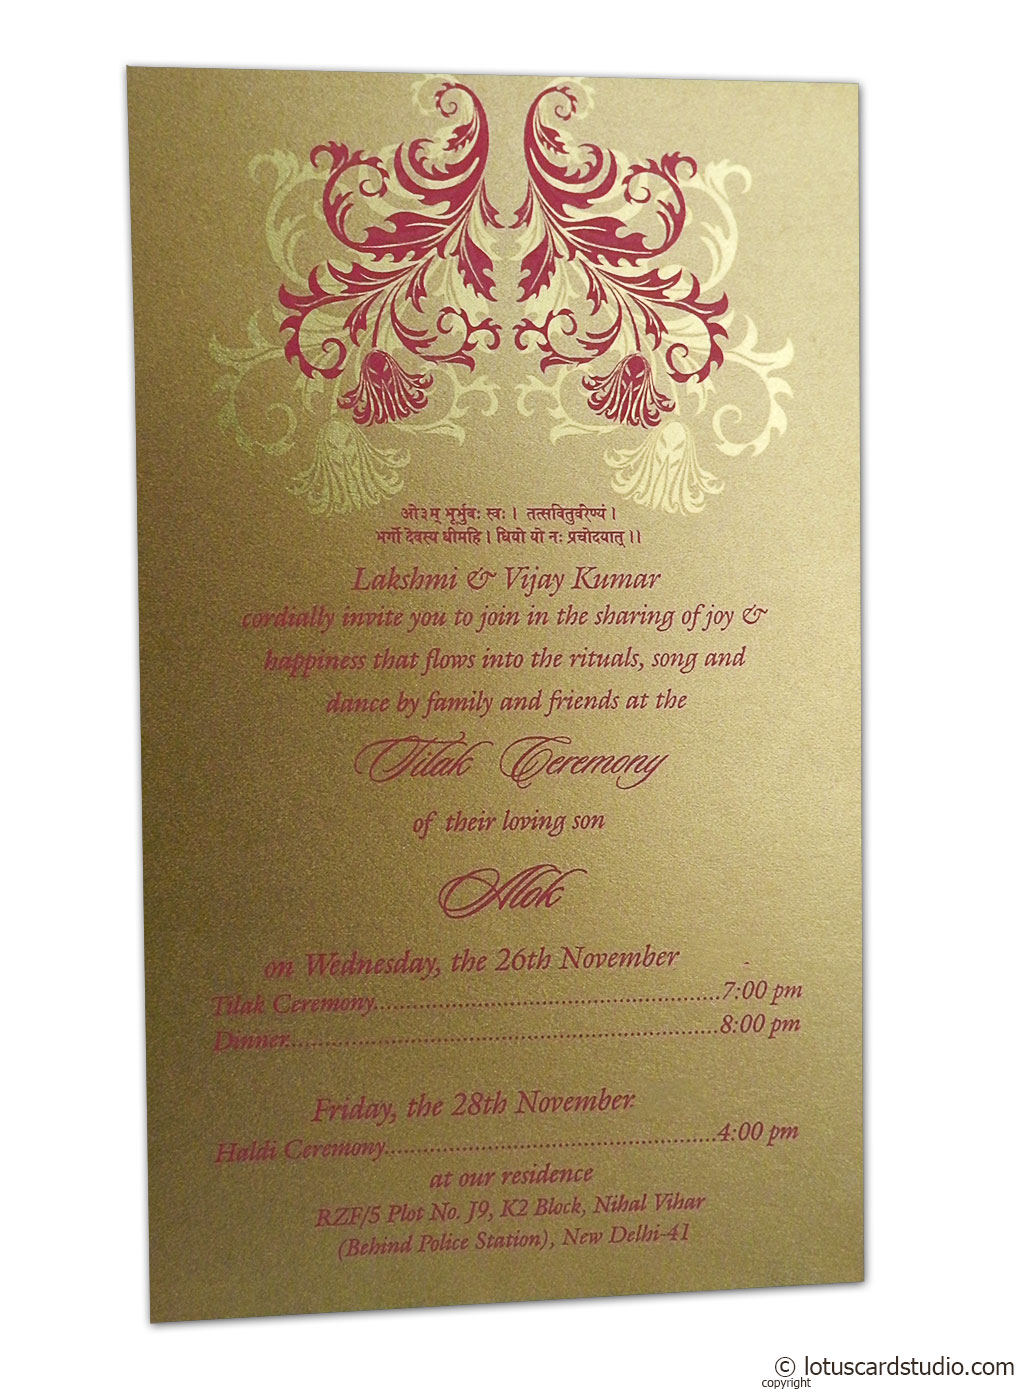 ओ३म् भूर्भुवः स्वः । तत्सवितुर्वरेण्यं ।
भर्गो देवस्य धीमहि । धियो यो नः प्रचोदयात् ।।
Lakshmi & Vijay Kumar
cordially invite you to join in the sharing of joy &
happiness that flows into the rituals, song and
dance by family and friends at the
Tilak Ceremony
of their loving son
Alok
on Wednesday, the 26th November
Tilak Ceremony..................................................7:00 pm
Dinner...............................................................8:00 pm
Friday, the 28th November
Haldi Ceremony................................................4:00 pm
at our residence
RZF/5 Plot No. J9, K2 Block, Nihal Vihar
(Behind Police Station), New Delhi-41
© lotuscardstudio.com
copyright